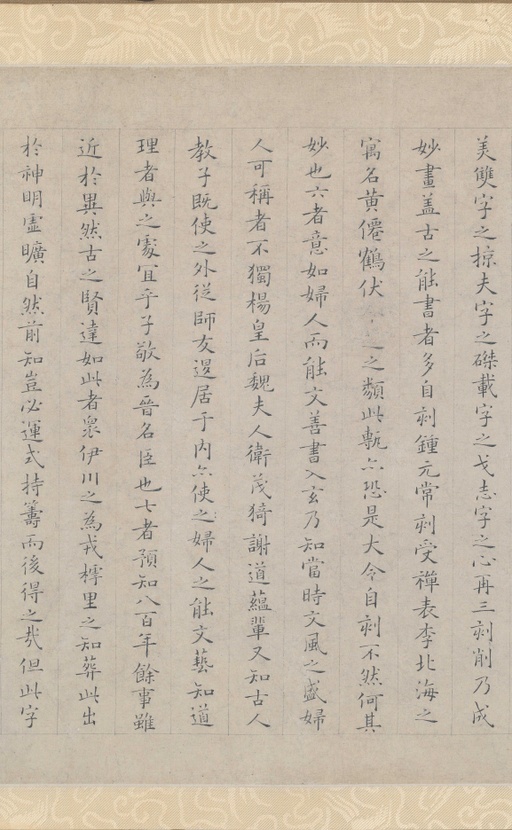 美雙字之掠夫字之磔載字之戈志字之心再三刻削乃成
妙畫盖古之能書者多自刻鍾元常刻受禪表李北海之
寓名黄僊鶴伏之之類此甎亦恐是大令自刻不然何其
妙也六者意如婦人而能文善書入玄乃知當時文風之盛婦
人可稱者不獨楊皇后魏夫人衛茂猗謝道蘊輩又知古人
教子既使之外從師友退居于内亦使之婦人之能文藝知道
理者與之處宜乎子敬為晉名臣也七者預知八百年餘事雖
近於異然古之賢達如此者衆伊川之為戎樗里之知葬此出
於神明虚曠自然前知豈必運式持籌而後得之哉但此字